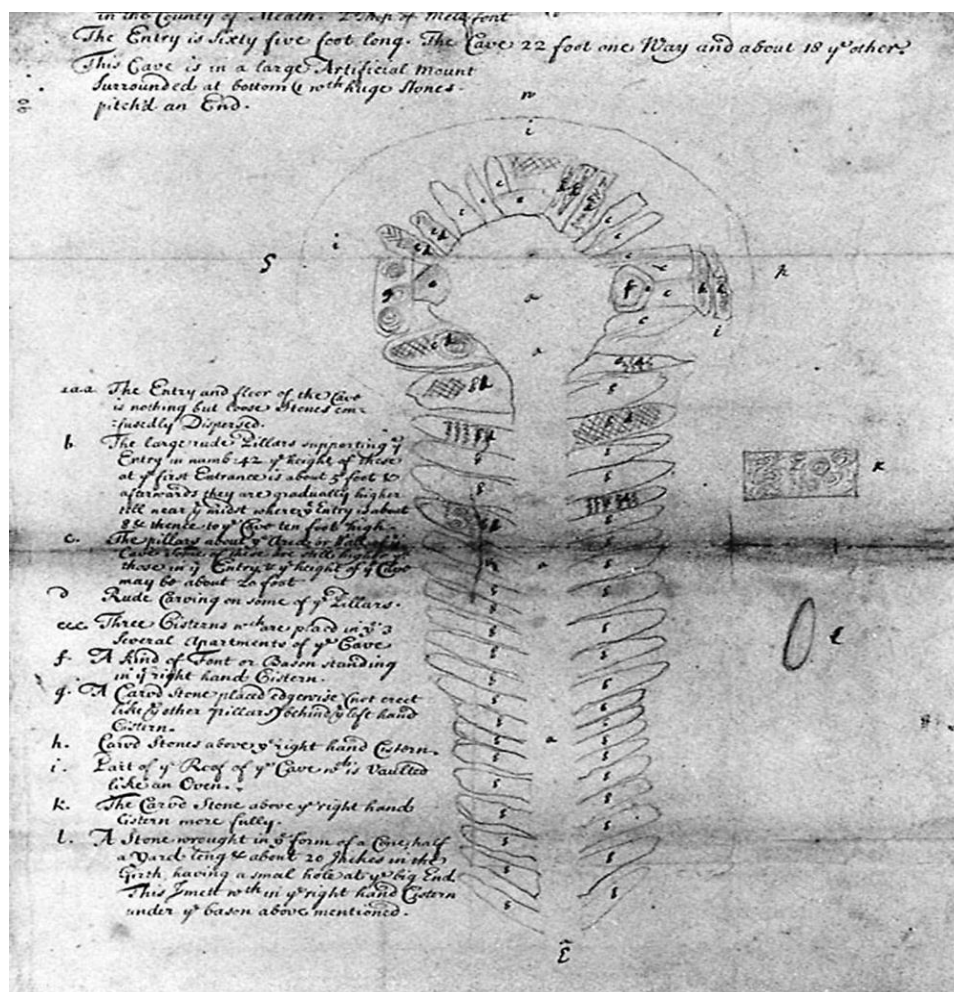 in the County of Meath. 2 Myls of Mellefont
The Entry is Sixty five foot long. The Cave 22 foot one Way and about 18 yᵉ other.
This Cave is in a large Artificial Mount
Surrounded at bottom wᵗʰ huge Stones
pitch'd an End.
w
i
i
S
n
i
a.a.a The Entry and floor of the Cave
is nothing but loose Stones con-
-fusedly Dispersed.
b. The large rude Pillars supporting yᵉ
Entry in numb: 42 yᵉ height of these
at yᵉ first Entrance is about 5 foot &
afterwards they are gradually higher
till near yᵉ midst where yᵉ Entry is about
8 & thence to yᵉ Cave ten foot high.
c. The pillars about yᵉ Area of
Cave some of these are still higher yⁿ
those in yᵉ Entry, & yᵉ height of yᵉ Cave
may be about 20 foot
k
D Rude Carving on some of yᵉ Pillars.
eee Three Cisterns wᶜʰ are placed in yᵉ 3
Several Apartments of yᵉ Cave
f. A kind of Font or Bason standing
in yᵉ right hand Cistern.
l
g. A Carvd Stone placed edgewise (not erect
like yᵉ other pillars) behind yᵉ left hand
Cistern.
h. Carvd Stones above yᵉ right hand Cistern.
i. Part of yᵉ Roof of yᵉ Cave wᶜʰ is Vaulted
like an Oven.
k. The Carvd Stone above yᵉ right hand
Cistern more fully.
l. A Stone wrought in yᵉ form of a Cone, half
a Yard long & about 20 Inches in the
Girth, having a smal hole at yᵉ big End
This I mett wᵗʰ in yᵉ right hand Cistern
under yᵉ bason above mentioned.
E